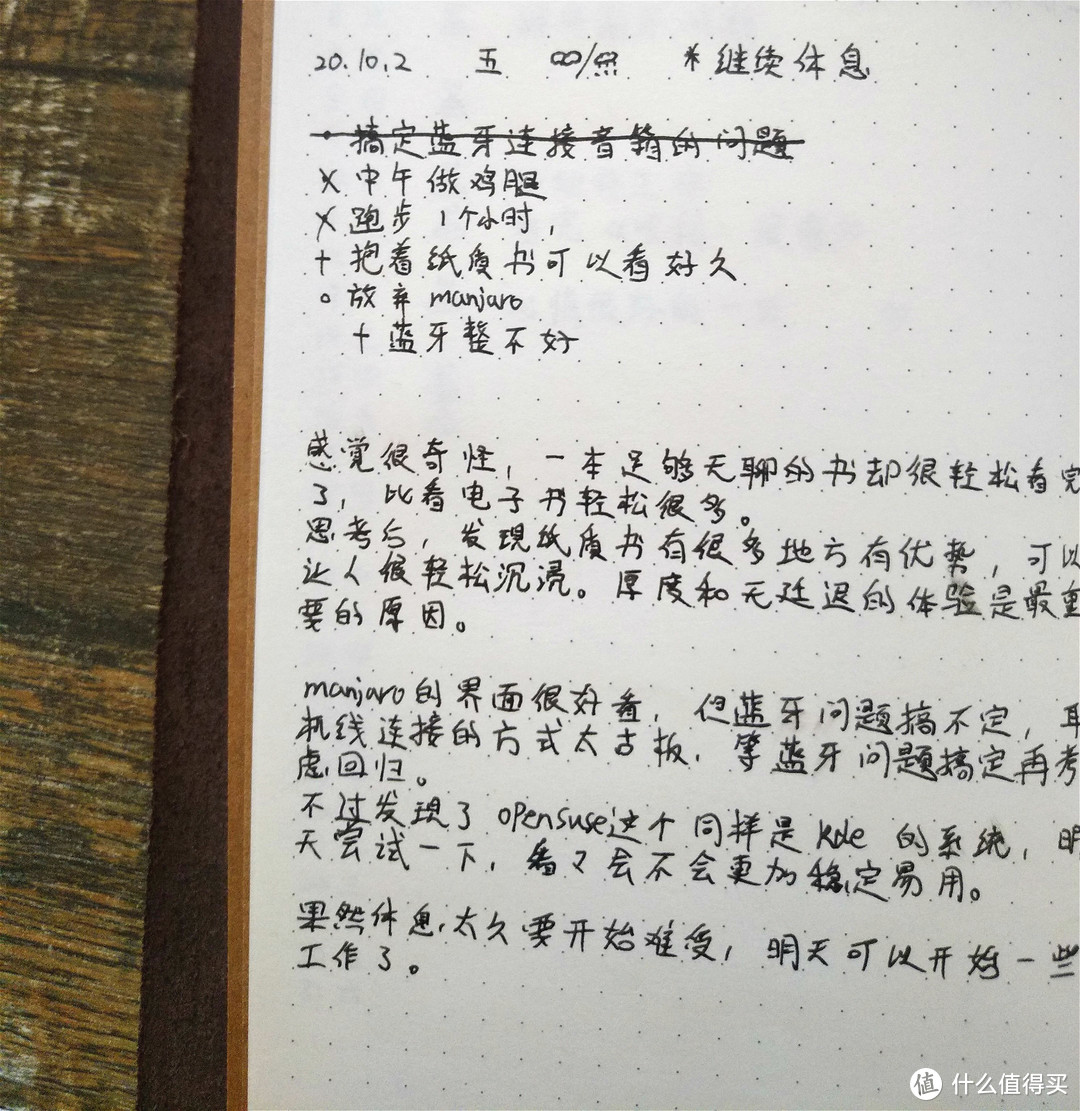 20.10.2 五 ∞/点 *继续休息
• 搞定蓝牙连接音箱的问题
× 中午做鸡腿
× 跑步1个小时,
+ 抱着纸质书可以看好久
∘ 放弃manjaro
+ 蓝牙整不好
感觉很奇怪,一本足够无聊的书却很轻松看完
了,比看电子书轻松很多。
思考后,发现纸质书有很多地方有优势,可以
让人很轻松沉浸。厚度和无延迟的体验是最重
要的原因。
manjaro的界面很好看,但蓝牙问题搞不定,耳
机线连接的方式太古板,等蓝牙问题搞定再考
虑回归。
不过发现了opensuse这个同样是kde的系统,明
天尝试一下,看々会不会更加稳定易用。
果然休息太久要开始难受,明天可以开始一些
工作了。
值 什么值得买